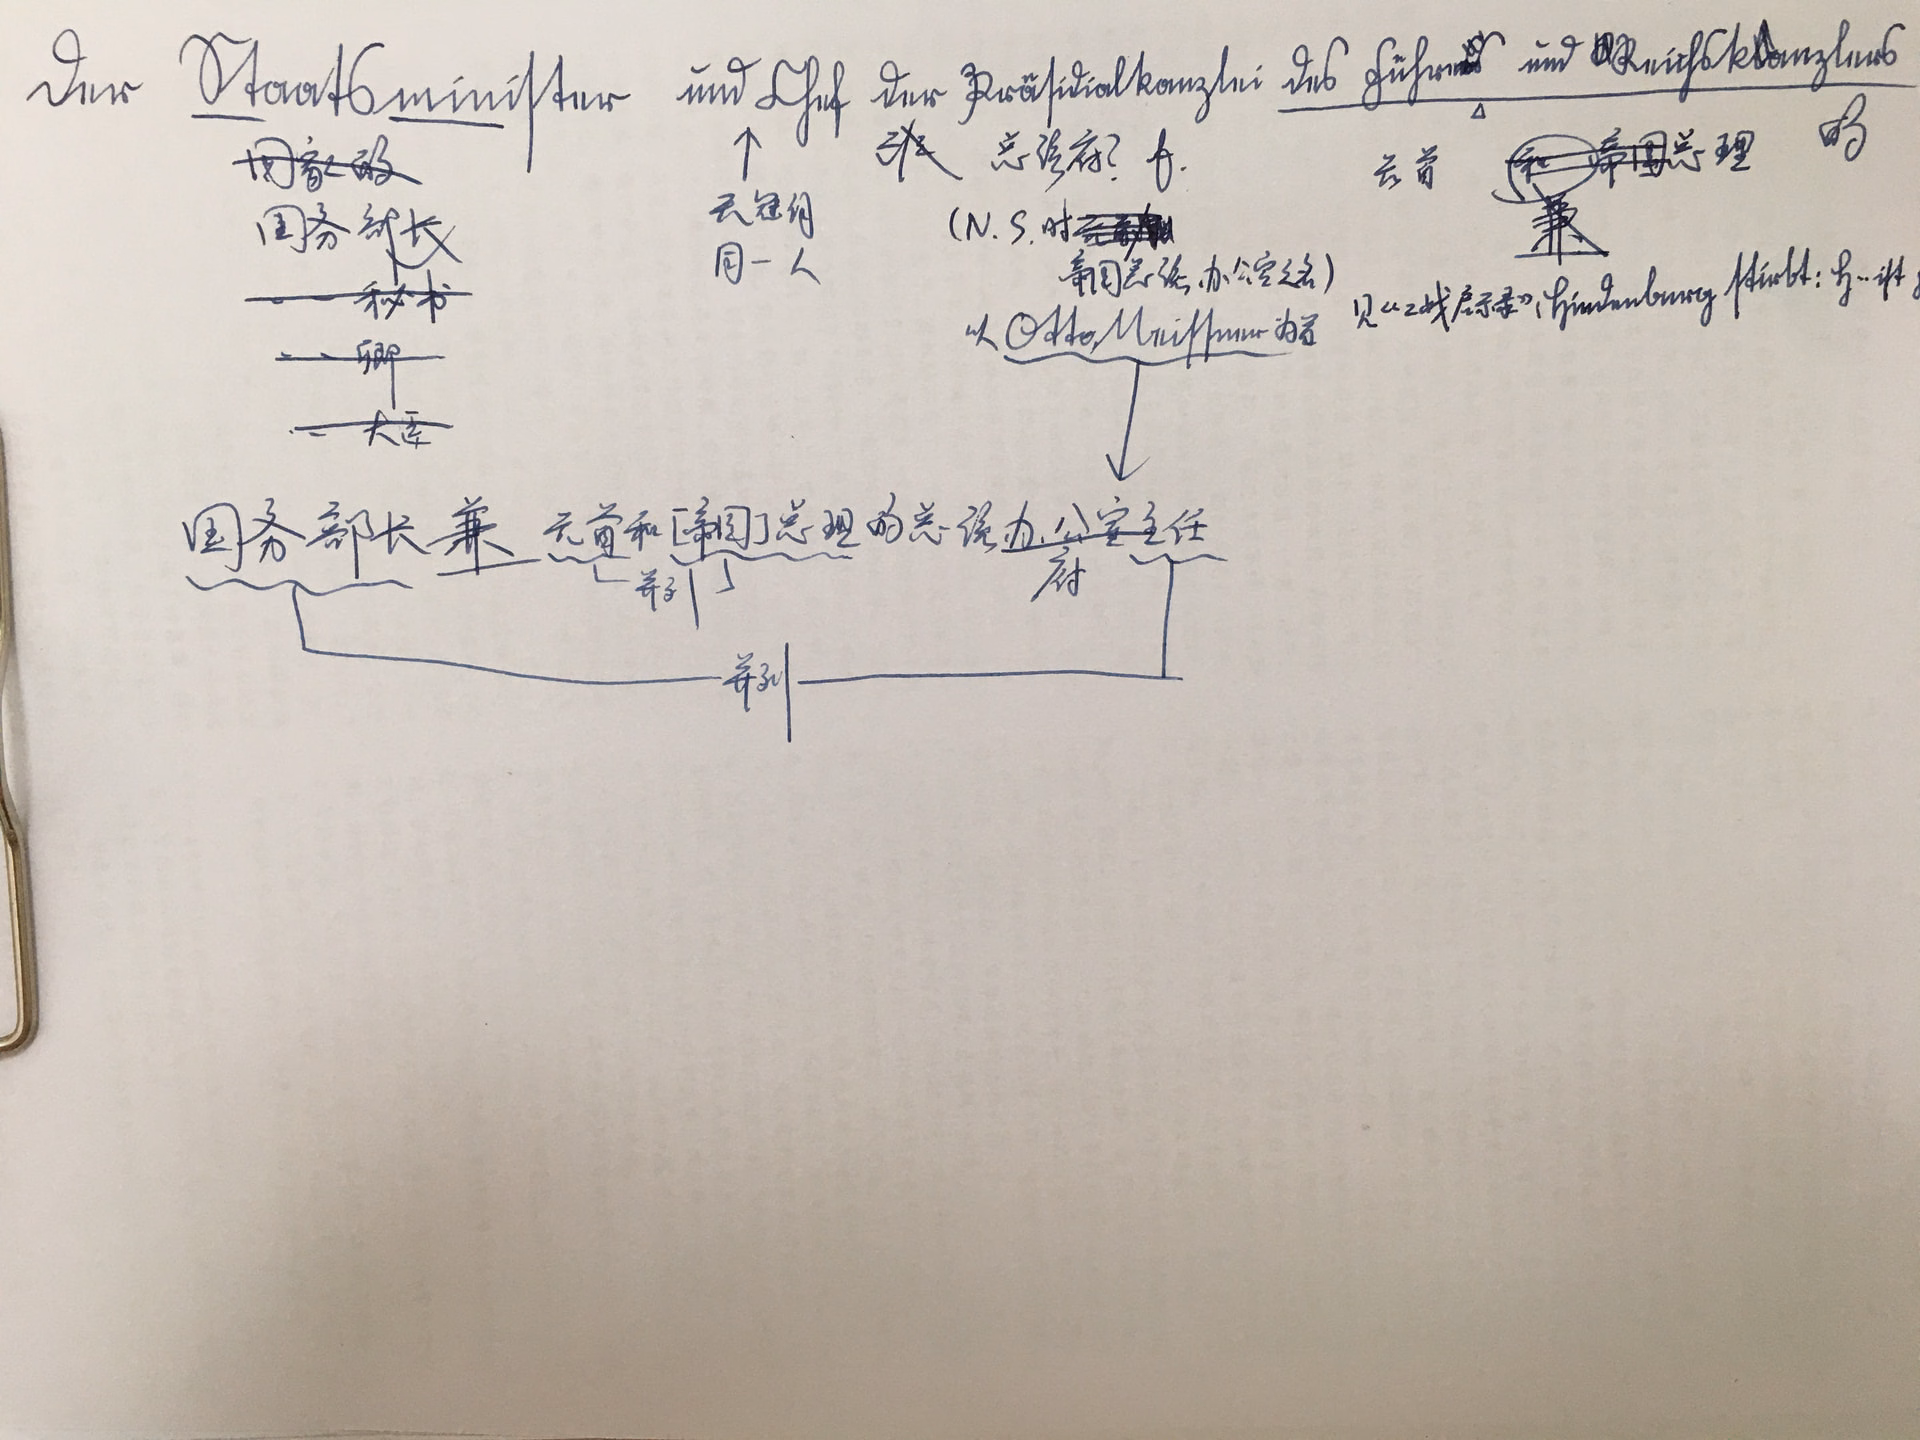 Der Staatsminister und Chef der Präsidialkanzlei des Führers und Reichskanzlers
国家的
国务部长
秘书
卿
大臣
↑
无冠词
同一人
总统府? f.
(N.S.时
帝国总统办公室之名)
以 Otto Meissner 为首
元首 和 帝国总理 的
兼
见“二战启示录”, Hindenburg stirbt: H…ist
国务部长兼元首和[帝国]总理的总统办公室主任
府
并列
并列